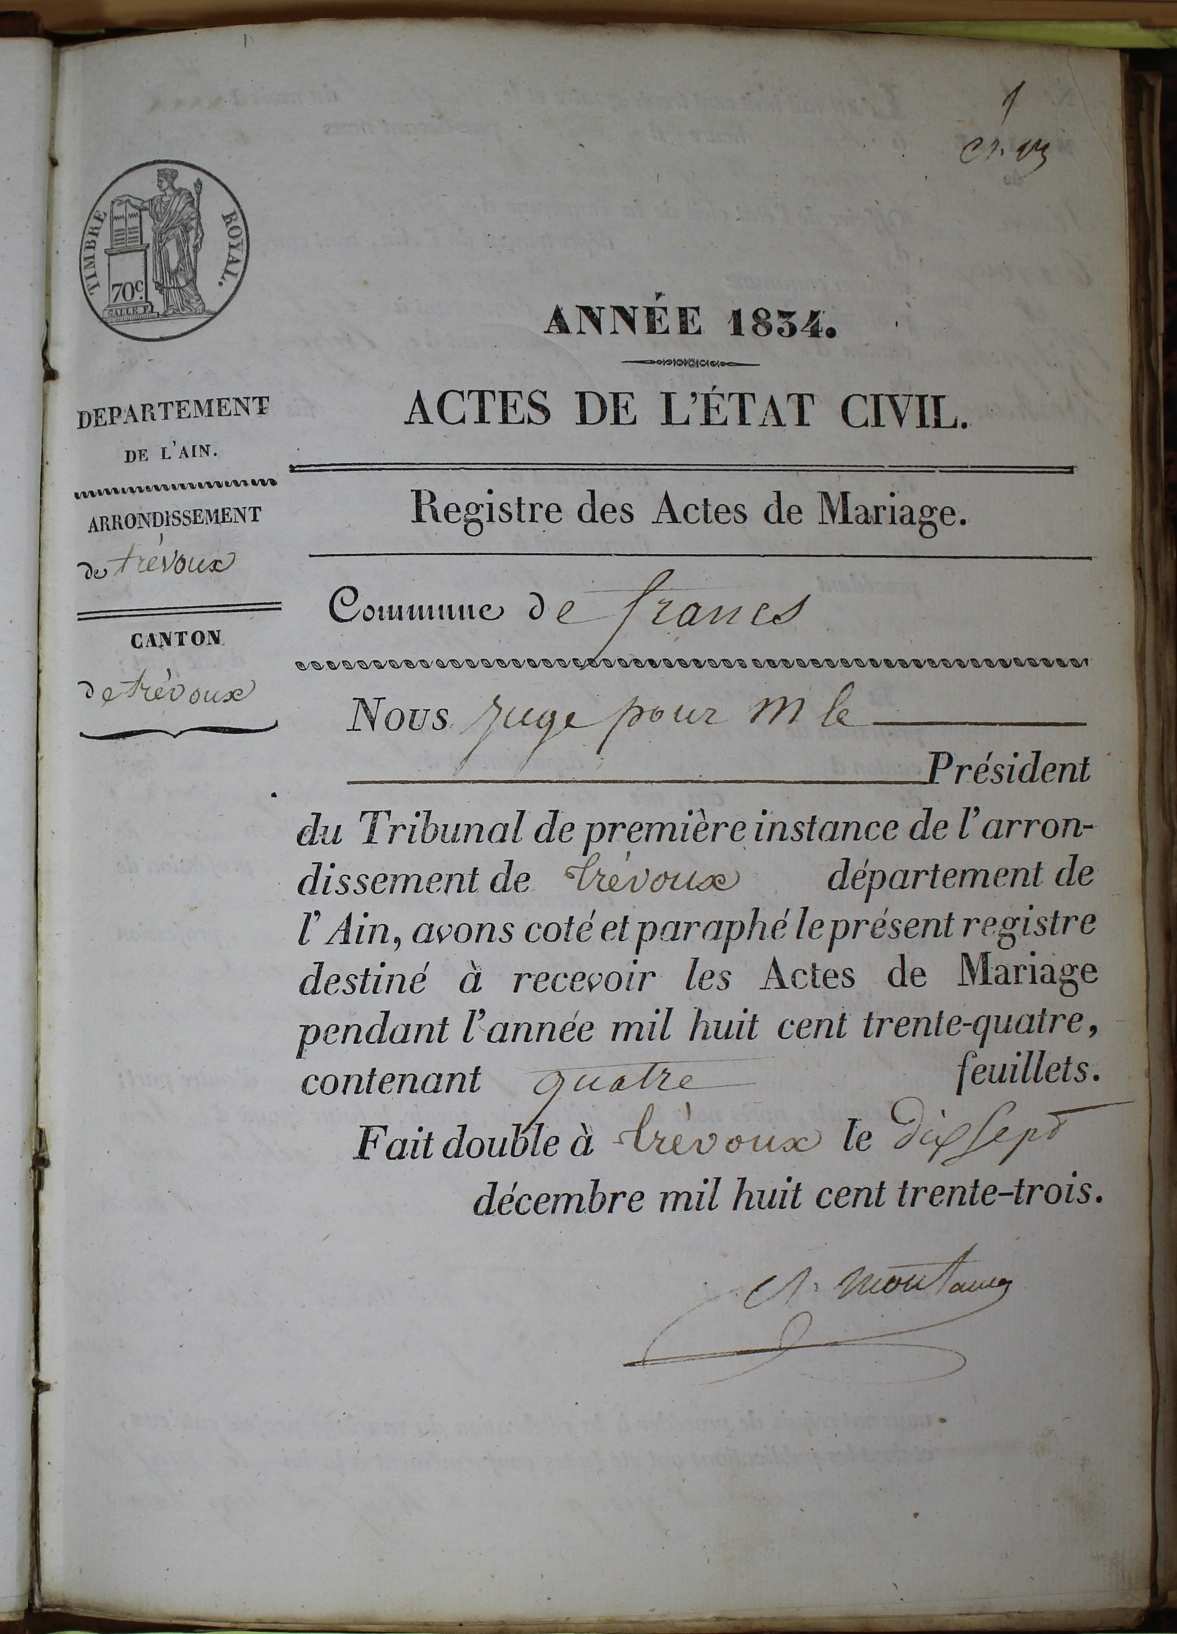 1
TIMBRE ROYAL.
70c.
ANNÉE 1834.
DEPARTEMENT
DE L'AIN.
ACTES DE L'ÉTAT CIVIL.
ARRONDISSEMENT
de trévoux
Registre des Actes de Mariage.
CANTON
de trévoux
Commune de francs
Nous Juge pour M le
Président
du Tribunal de première instance de l'arron-
dissement de trévoux département de
l'Ain, avons coté et paraphé le présent registre
destiné à recevoir les Actes de Mariage
pendant l'année mil huit cent trente-quatre,
contenant quatre feuillets.
Fait double à trévoux le Dix Sept
décembre mil huit cent trente-trois.